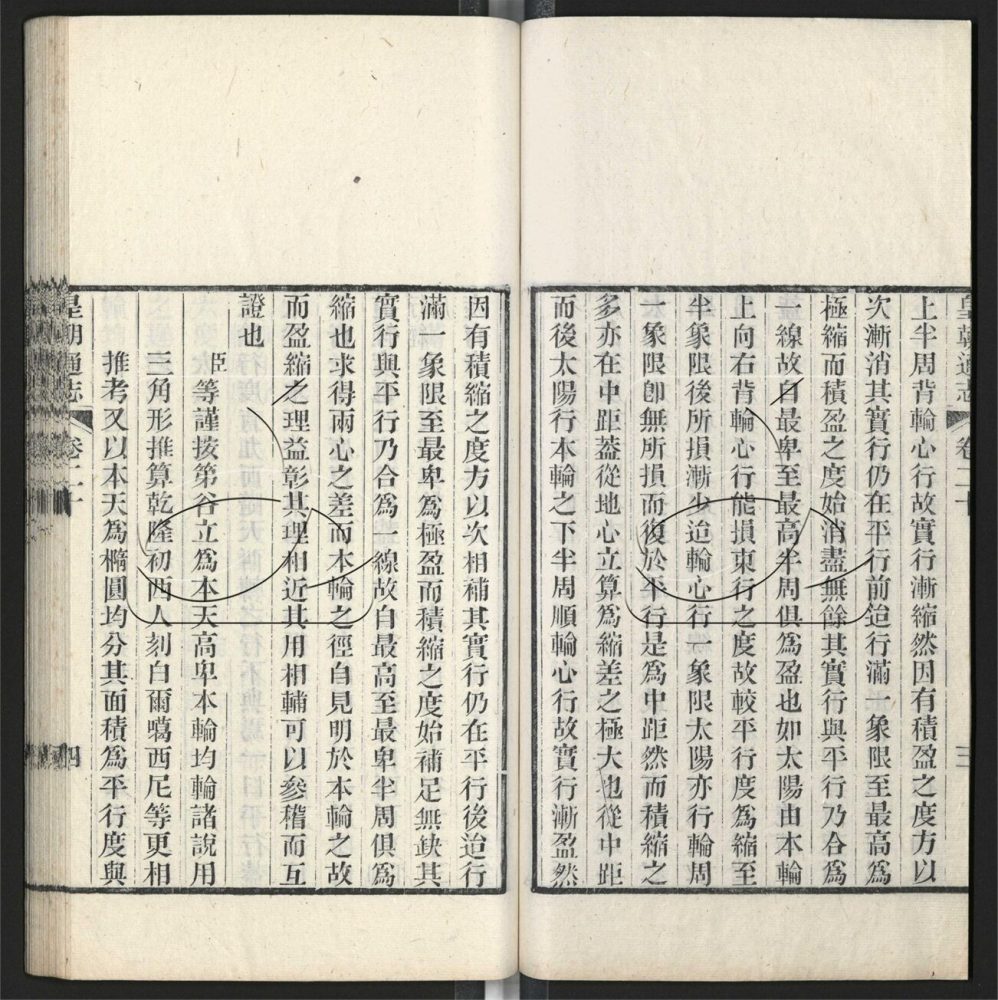 皇朝通志 卷二十 三
上半周背輪心行故實行漸縮然因有積盈之度方以
次漸消其實行仍在平行前迨行滿一象限至最高為
極縮而積盈之度始消盡無餘其實行與平行乃合為
一線故自最卑至最高半周俱為盈也如太陽由本輪
上向右背輪心行能損東行之度故較平行度為縮至
半象限後所損漸少迨輪心行一象限太陽亦行輪周
一象限卽無所損而復於平行是為中距然而積縮之
多亦在中距葢從地心立算為縮差之極大也從中距
而後太陽行本輪之下半周順輪心行故實行漸盈然
因有積縮之度方以次相補其實行仍在平行後迨行
滿一象限至最卑為極盈而積縮之度始補足無缺其
實行與平行乃合為一線故自最高至最卑半周俱為
縮也求得兩心之差而本輪之徑自見明於本輪之故
而盈縮之理益彰其理相近其用相輔可以參稽而互
證也
臣等謹按第谷立為本天高卑本輪均輪諸說用
三角形推算乾隆初西人刻白爾噶西尼等更相
推考又以本天為橢圓均分其面積為平行度與
皇朝通志 卷二十 四